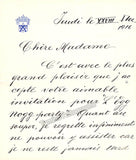 Jeudi le XXVIII Xbre
1916
Chère Madame
C'est avec le plus
grand plaisir que j'ai
accepté votre aimable
invitation pour l'"Egg
nogg party". Quant au
souper, je regrette infiniment
ne pouvoir y assister car
je ne reste jamais tard